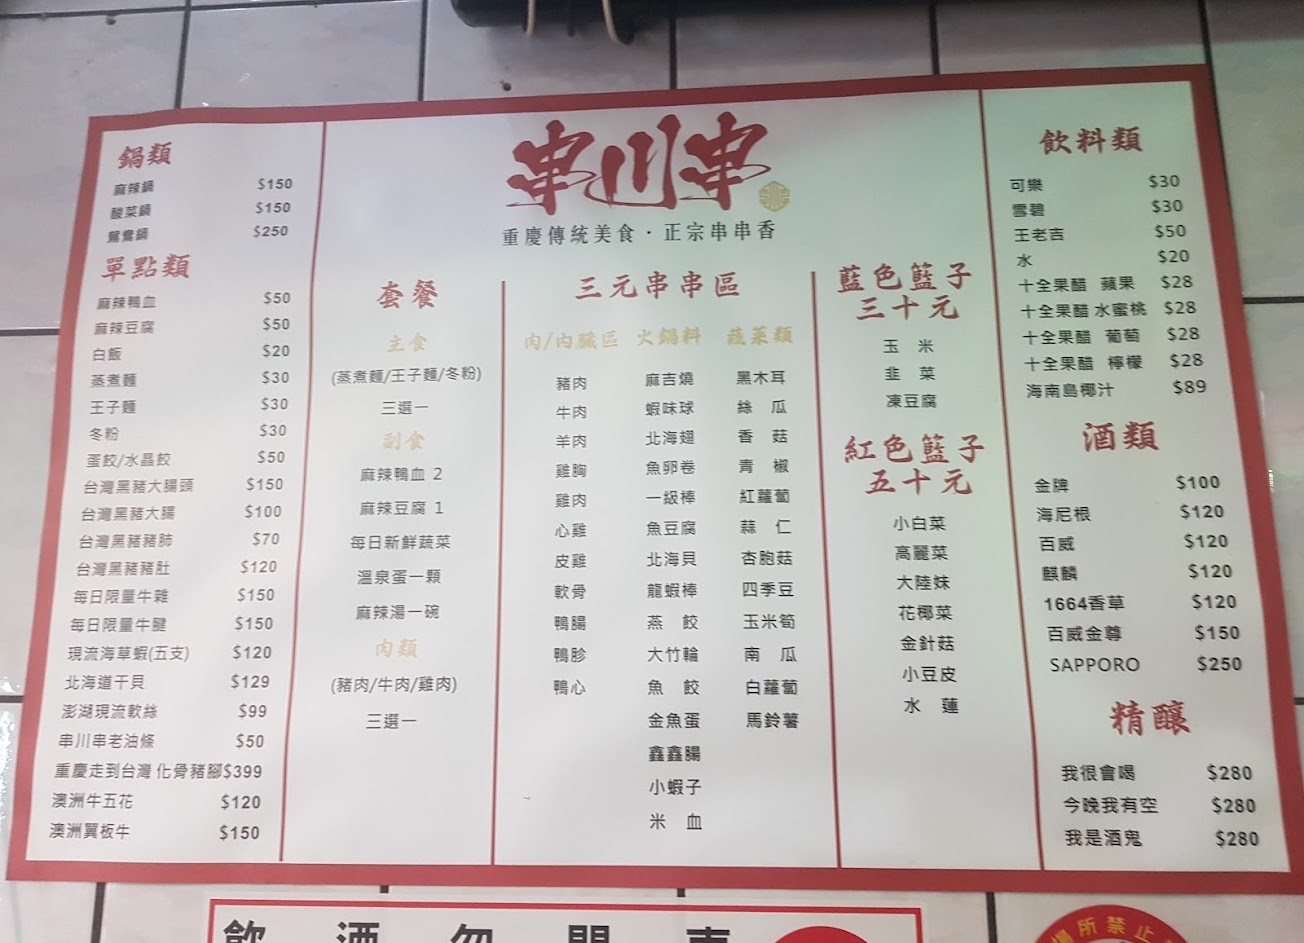 串川串
重慶傳統美食·正宗串串香
鍋類
麻辣鍋 $150
酸菜鍋 $150
鴛鴦鍋 $250
單點類
麻辣鴨血 $50
麻辣豆腐 $50
白飯 $20
蒸煮麵 $30
王子麵 $30
冬粉 $30
蛋餃/水晶餃 $50
台灣黑豬大腸頭 $150
台灣黑豬大腸 $100
台灣黑豬豬肺 $70
台灣黑豬豬肚 $120
每日限量牛雜 $150
每日限量牛腱 $150
現流海草蝦(五支) $120
北海道干貝 $129
澎湖現流軟絲 $99
串川串老油條 $50
重慶走到台灣 化骨豬腳$399
澳洲牛五花 $120
澳洲翼板牛 $150
套餐
主食
(蒸煮麵/王子麵/冬粉)
三選一
副食
麻辣鴨血 2
麻辣豆腐 1
每日新鮮蔬菜
溫泉蛋一顆
麻辣湯一碗
肉類
(豬肉/牛肉/雞肉)
三選一
三元串串區
肉/內臟區 火鍋料 蔬菜類
豬肉 麻吉燒 黑木耳
牛肉 蝦味球 絲 瓜
羊肉 北海翅 香 菇
雞胸 魚卵卷 青 椒
雞肉 一級棒 紅蘿蔔
心雞 魚豆腐 蒜 仁
皮雞 北海貝 杏胞菇
軟骨 龍蝦棒 四季豆
鴨腸 燕 餃 玉米筍
鴨胗 大竹輪 南 瓜
鴨心 魚 餃 白蘿蔔
金魚蛋 馬鈴薯
鑫鑫腸
小蝦子
米 血
藍色籃子
三十元
玉 米
韭 菜
凍豆腐
紅色籃子
五十元
小白菜
高麗菜
大陸妹
花椰菜
金針菇
小豆皮
水 蓮
飲料類
可樂 $30
雪碧 $30
王老吉 $50
水 $20
十全果醋 蘋果 $28
十全果醋 水蜜桃 $28
十全果醋 葡萄 $28
十全果醋 檸檬 $28
海南島椰汁 $89
酒類
金牌 $100
海尼根 $120
百威 $120
麒麟 $120
1664香草 $120
百威金尊 $150
SAPPORO $250
精釀
我很會喝 $280
今晚我有空 $280
我是酒鬼 $280
飲 酒 勿 開 車
所禁止